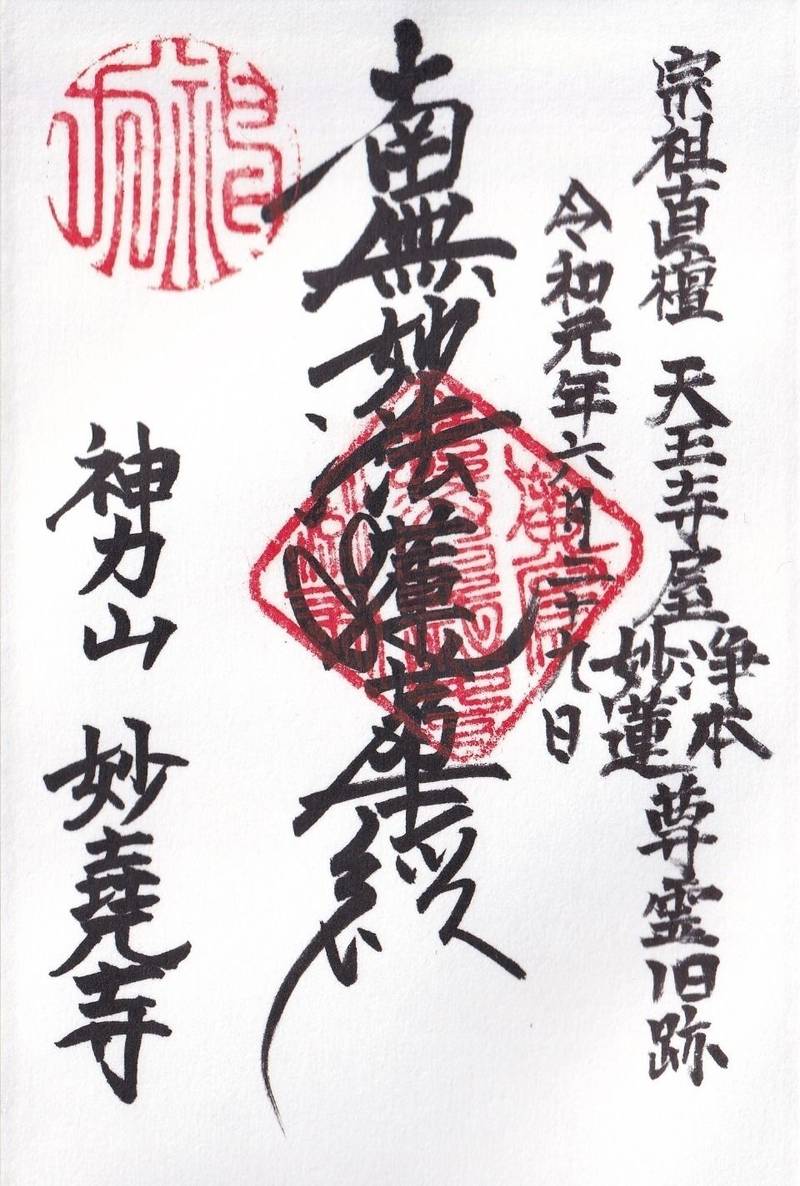 宗祖直檀 天王寺屋 浄本 妙蓮 尊霊旧跡
令和元年六月二十九日
南無妙法蓮華経
神力山 妙堯寺